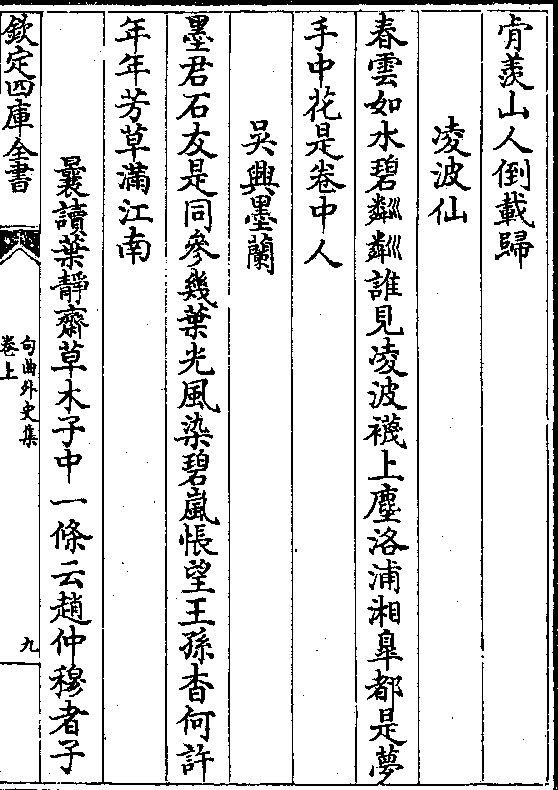 肯羨山人倒載歸
凌波仙
春雲如水碧粼粼誰見凌波襪上塵洛浦湘臯都是夢
手中花是卷中人
吳興墨蘭
墨君石友是同參幾葉光風染碧嵐悵望王孫杳何許
年年芳草滿江南
曩讀葉靜齋草木子中一條云趙仲穆者子
欽定四庫全書
句曲外史集
卷上
九